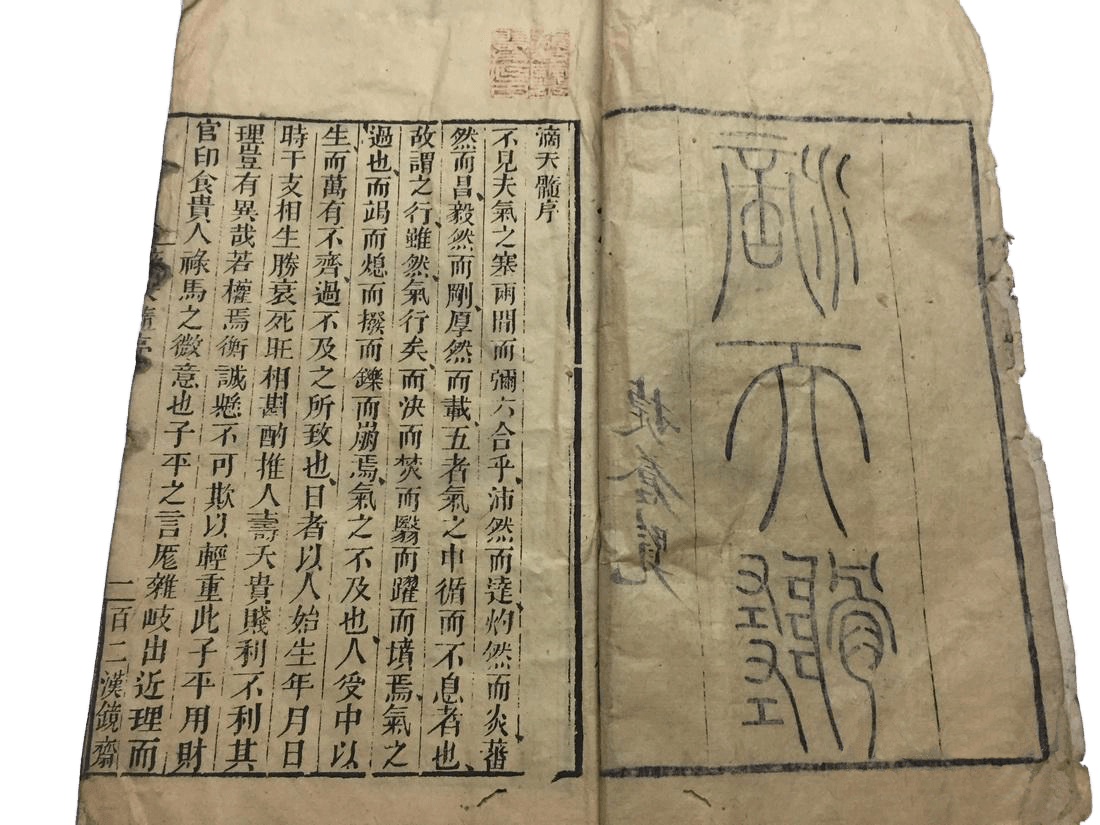 滴天髓
滴天髓序
不見夫氣之塞兩間而彌六合乎沛然而達灼然而炎蕃
然而昌毅然而剛厚然而載五者氣之中循而不息者也
故謂之行雖然氣行矣而决而焚而翳而躍而墳焉氣之
過也而竭而熄而撥而鑠而崩焉氣之不及也人受中以
生而萬有不齊過不及之所致也日者以人始生年月日
時干支相生勝衰死旺相斟酌推人壽夭貴賤利不利其
理豈有異哉若權焉衡誠懸不可欺以輕重此子平用財
官印食貴人祿馬之微意也子平之言厖雜岐出近理而
二百二漢鏡齋